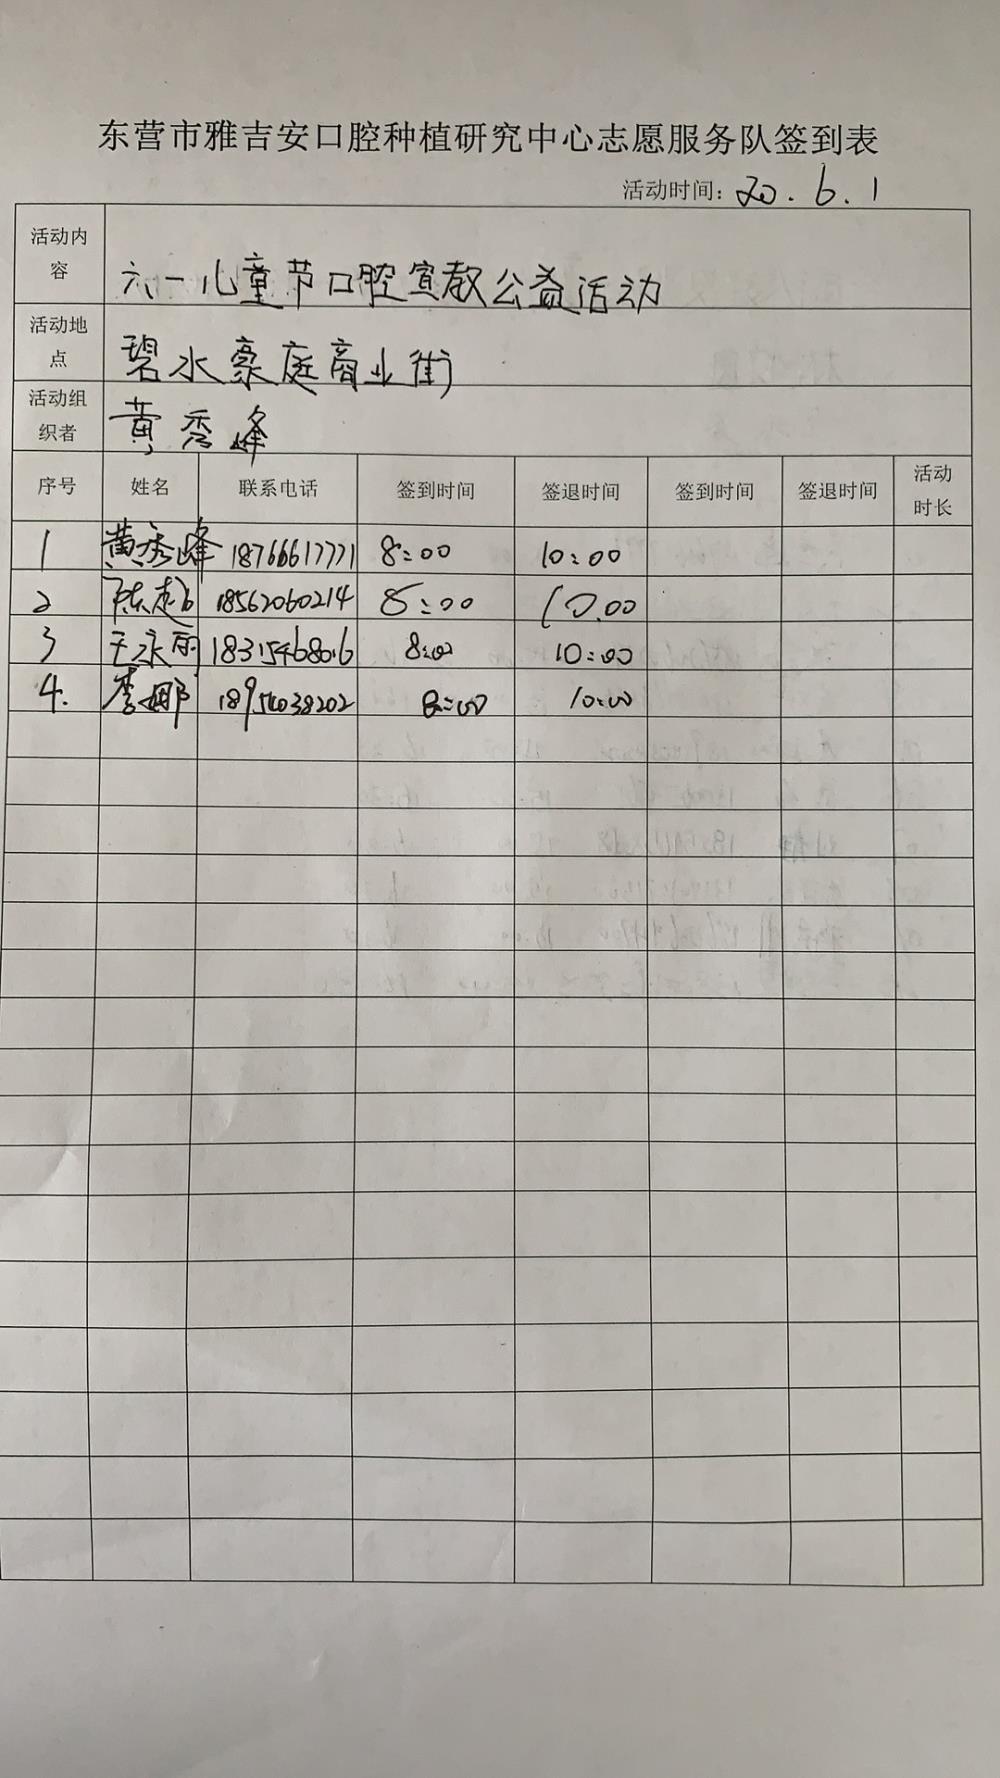 东营市雅吉安口腔种植研究中心志愿服务队签到表
活动时间：20.6.1
活动内容 六一儿童节口腔宣教公益活动
活动地点 碧水豪庭商业街
活动组织者 黄秀峰
序号 姓名 联系电话 签到时间 签退时间 签到时间 签退时间 活动时长
1 黄秀峰 18766617771 8:00 10:00
2 陈 18562060214 8:00 10:00
3 王永丽 18315468016 8:00 10:00
4. 李娜 18954038202 8:00 10:00